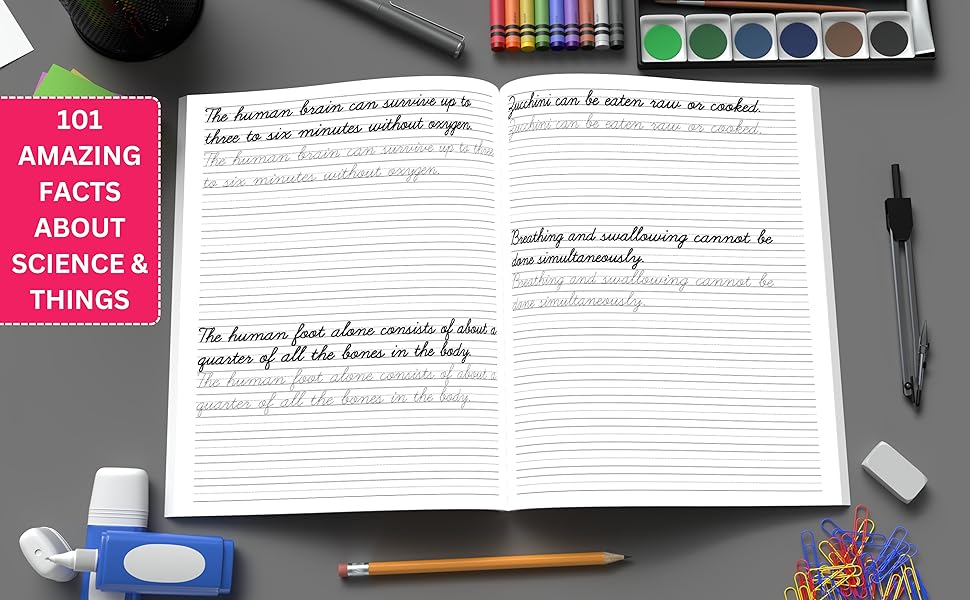 101
AMAZING
FACTS
ABOUT
SCIENCE &
THINGS
The human brain can survive up to
three to six minutes without oxygen.
The human brain can survive up to three
to six minutes without oxygen.
The human foot alone consists of about a
quarter of all the bones in the body.
The human foot alone consists of about a
quarter of all the bones in the body.
Zucchini can be eaten raw or cooked.
Zucchini can be eaten raw or cooked.
Breathing and swallowing cannot be
done simultaneously.
Breathing and swallowing cannot be
done simultaneously.